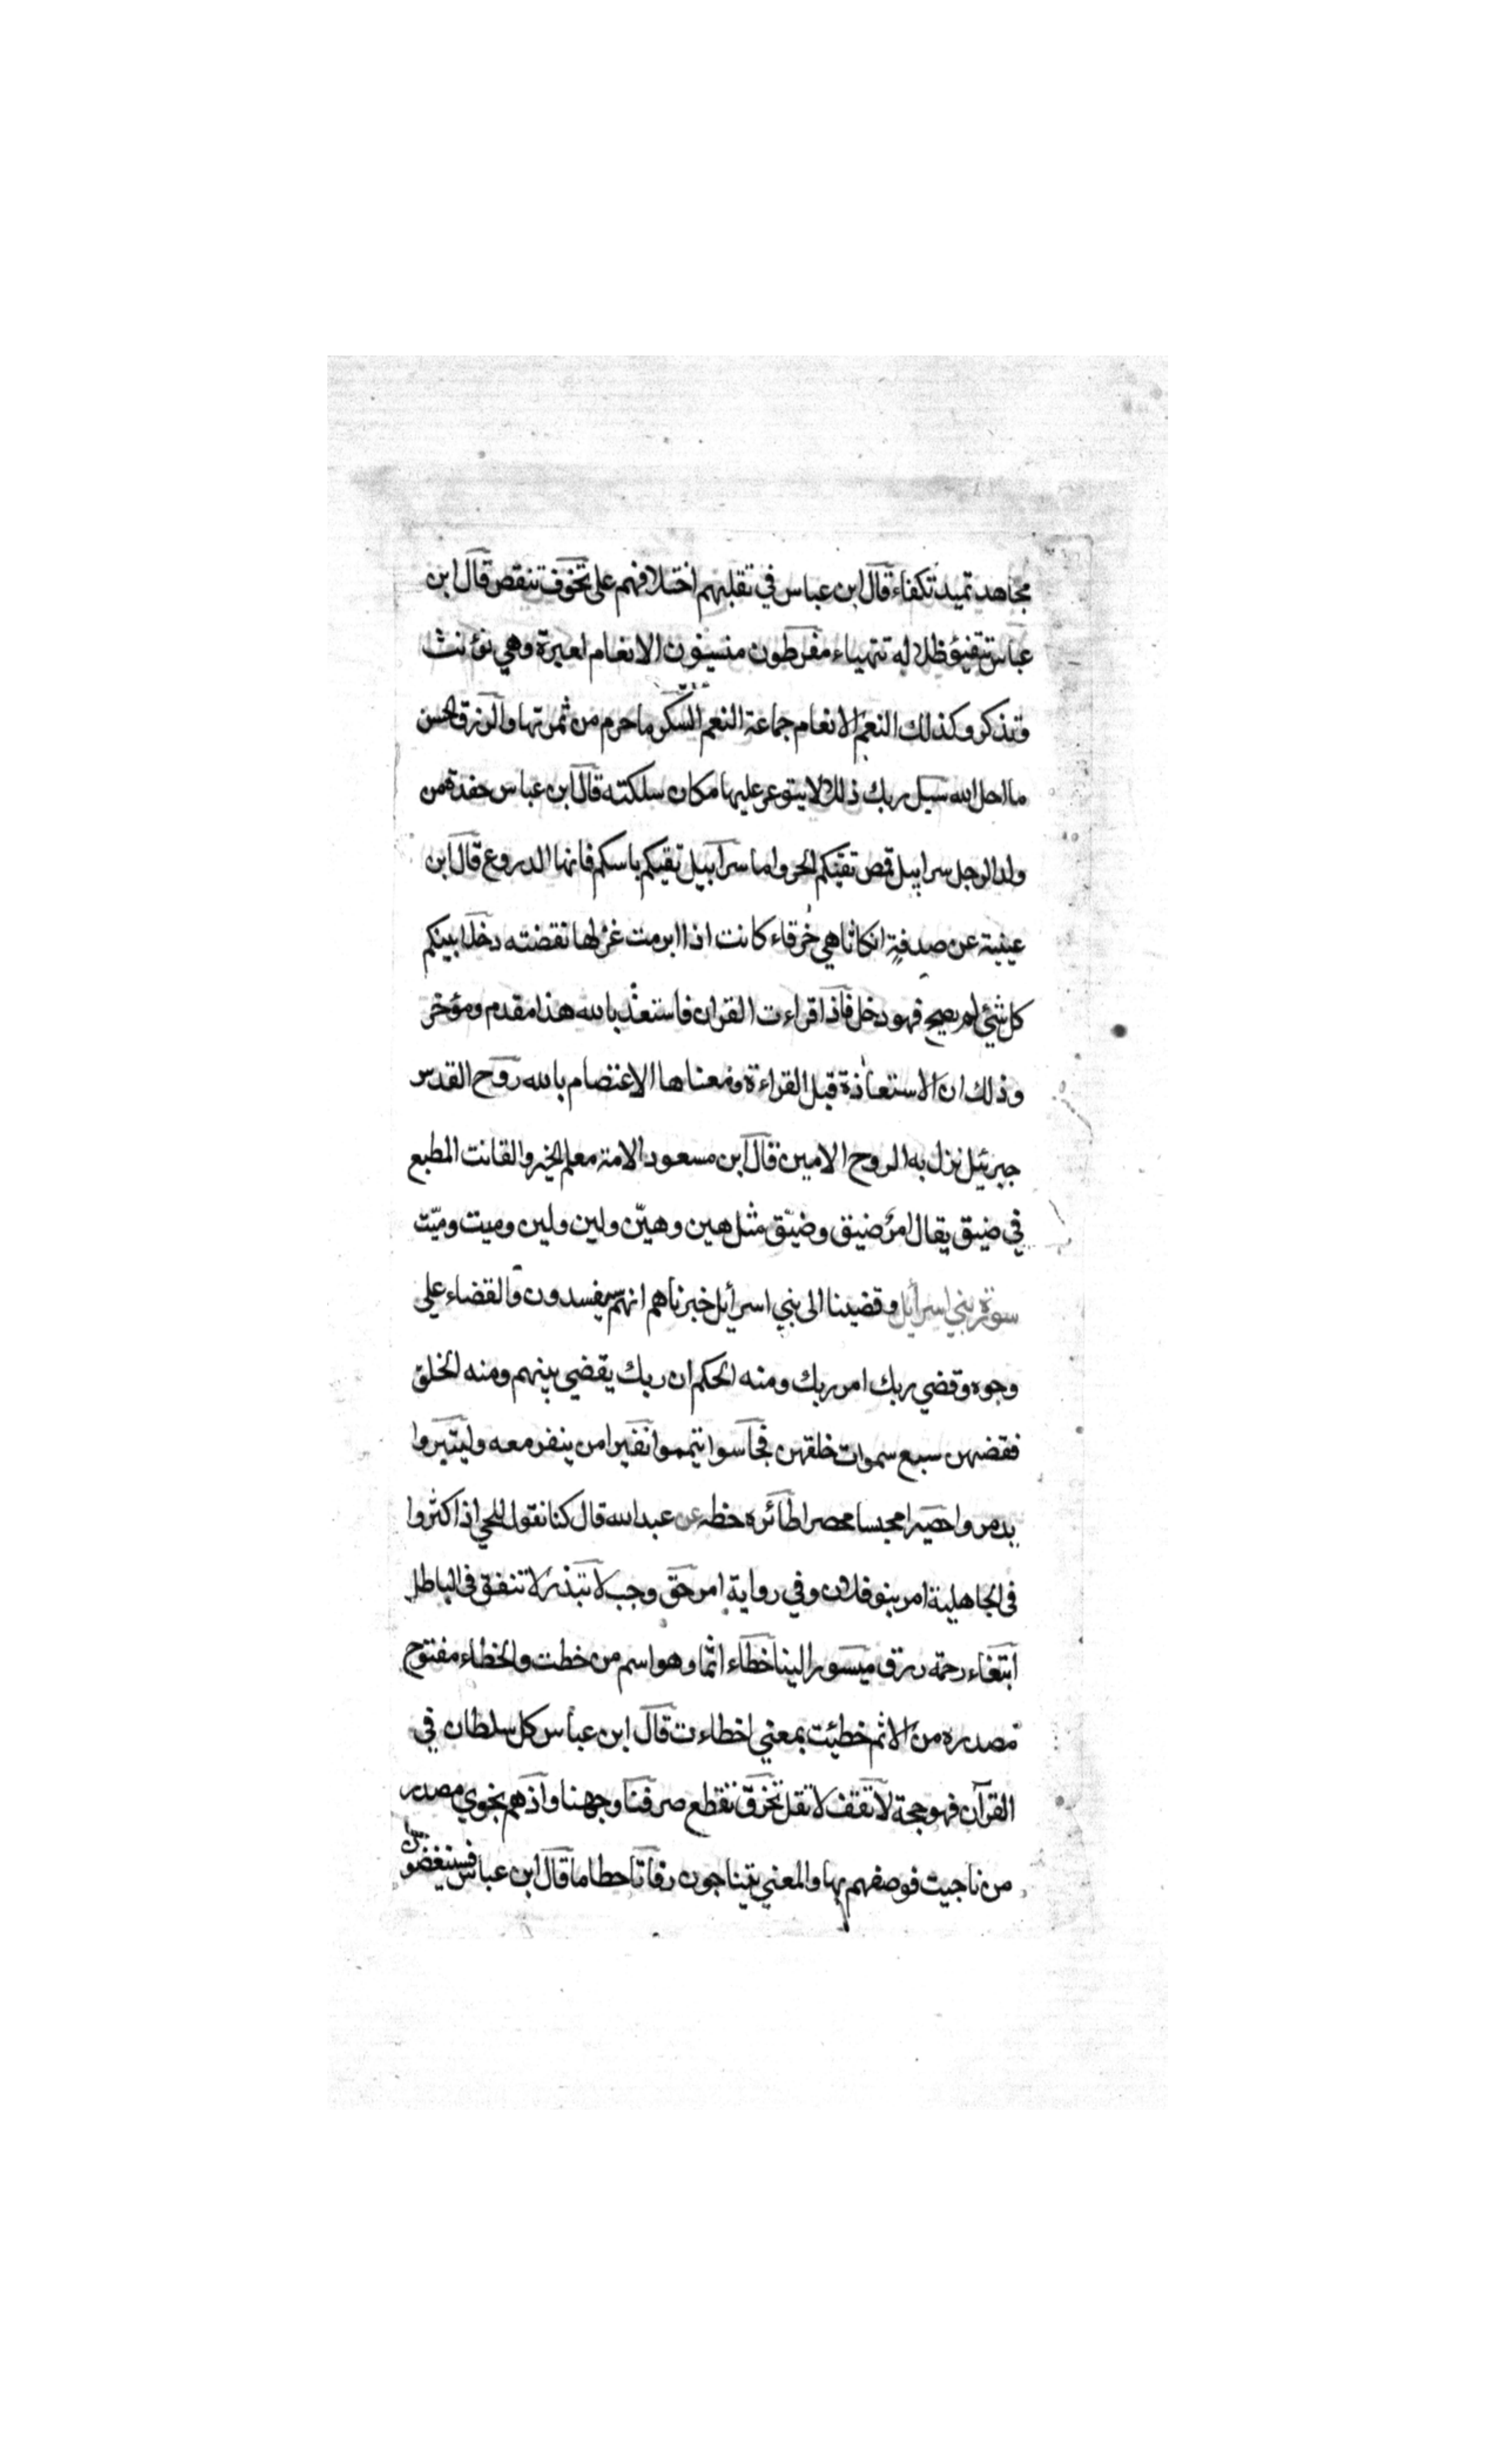 مجاهد تميد تكفاء قال ابن عباس في تقلبهم اختلافهم على تخوف تنقص قال ابن
عباس تتفيؤ ظلاله تتهياء مفرطون منسيون الانعام لعبرة وهي تؤنث
وتذكر وكذلك النعم الانعام جماعة النعم السكر ما حرم من ثمرتها والرزق الحسن
ما احل الله سبل ربك ذللا لا يتوعر عليها مكان سلكته قال ابن عباس حفدة من
ولد الرجل سرابيل قمص تقيكم الحر واما سرابيل تقيكم باسكم فانها الدروع قال ابن
عيينة عن صدقة انكاثا هي خرقاء كانت اذا ابرمت غزلها نقضته دخلا بينكم
كل شئ لم يصح فهو دخل فاذا قراءت القران فاستعذ بالله هذا مقدم ومؤخر
وذلك ان الاستعاذة قبل القراءة ومعناها الاعتصام بالله روح القدس
جبرئيل نزل به الروح الامين قال ابن مسعود الامة معلم الخير والقانت المطيع
في ضيق يقال امر ضيق وضيّق مثل هين وهيّن ولين ولين وميت وميّت
سورة بني اسرأيل وقضينا الى بني اسرأيل خبرناهم انهم سيفسدون والقضاء على
وجوه وقضي ربك امر ربك ومنه الحكم ان ربك يقضي بينهم ومنه الخلق
فقضهن سبع سموات خلقهن فجاسوا تيمموا نفيرا من ينفر معه وليتبروا
يدمروا حصيرا محبسا محصرا طائره حظه عن عبد الله قال كنا نقول للحي اذا كثروا
في الجاهلية امر بنو فلان وفي رواية امر حق وجب لا تبذر لا تنفق في الباطل
ابتغاء رحمة رزق ميسورا لينا خطاء اثما وهو اسم من خطت والخطاء مفتوح
مصدره من الاثم خطيئت بمعني اخطاءت قال ابن عباس كل سلطان في
القرآن فهو حجة لا تقف لا تقل تخرق تقطع صرفنا وجهنا واذ هم نجوي مصدر
من ناجيت فوصفهم بها والمعني يتناجون رفاتا حطاما قال ابن عباس فسينغضون